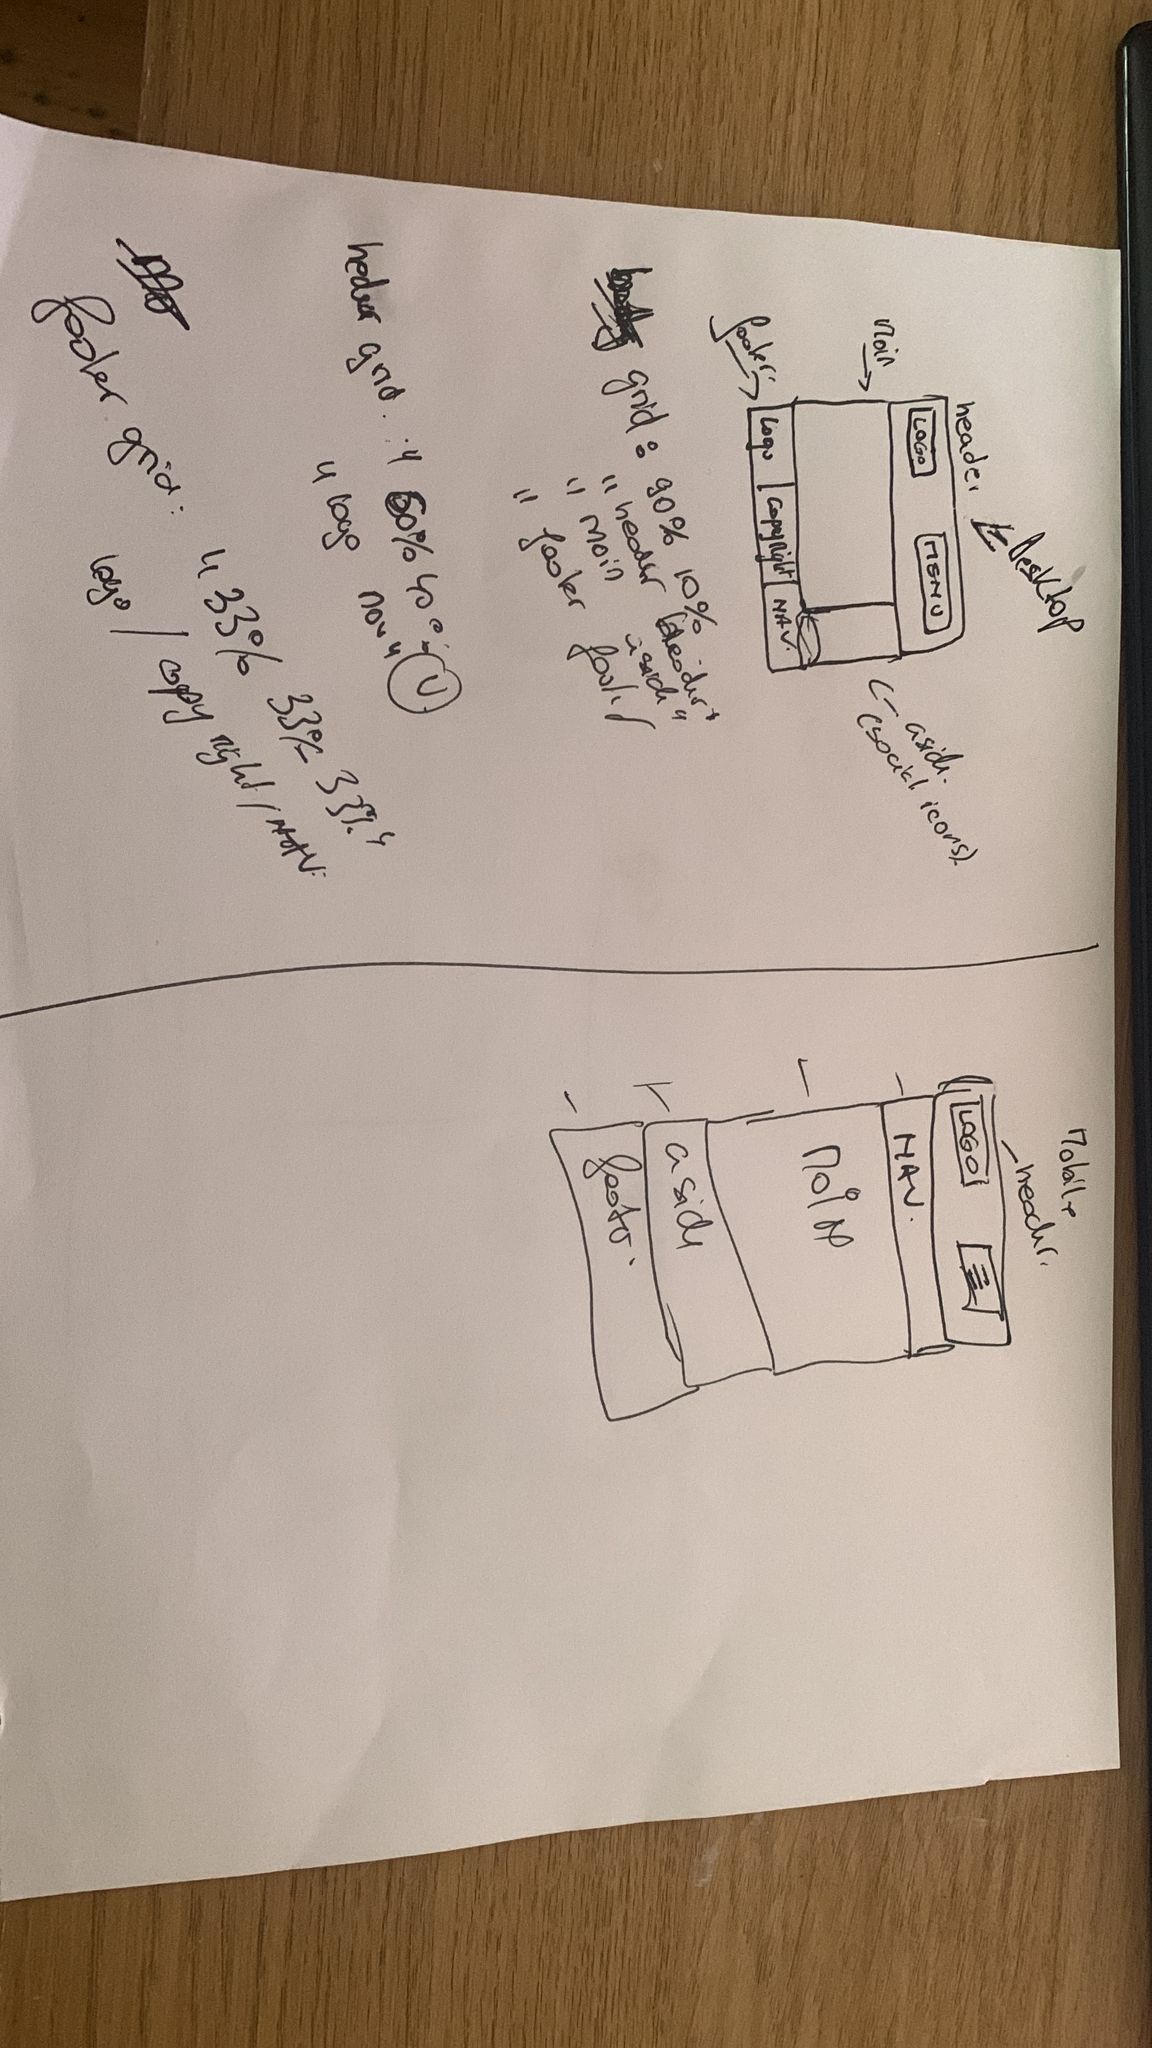 Desktop
header
LOGO
MENU
Main
aside.
(social icons).
footer
Logo
Copyright
NAV.
grid: 90% 10%
"header header"
"main aside"
"footer footer"
header grid: " 60% 40%"
"logo nav"
footer grid: " 33% 33% 33%"
logo / copy right / NAV.
Mobile
header.
LOGO
NAV.
Main
aside
footer.